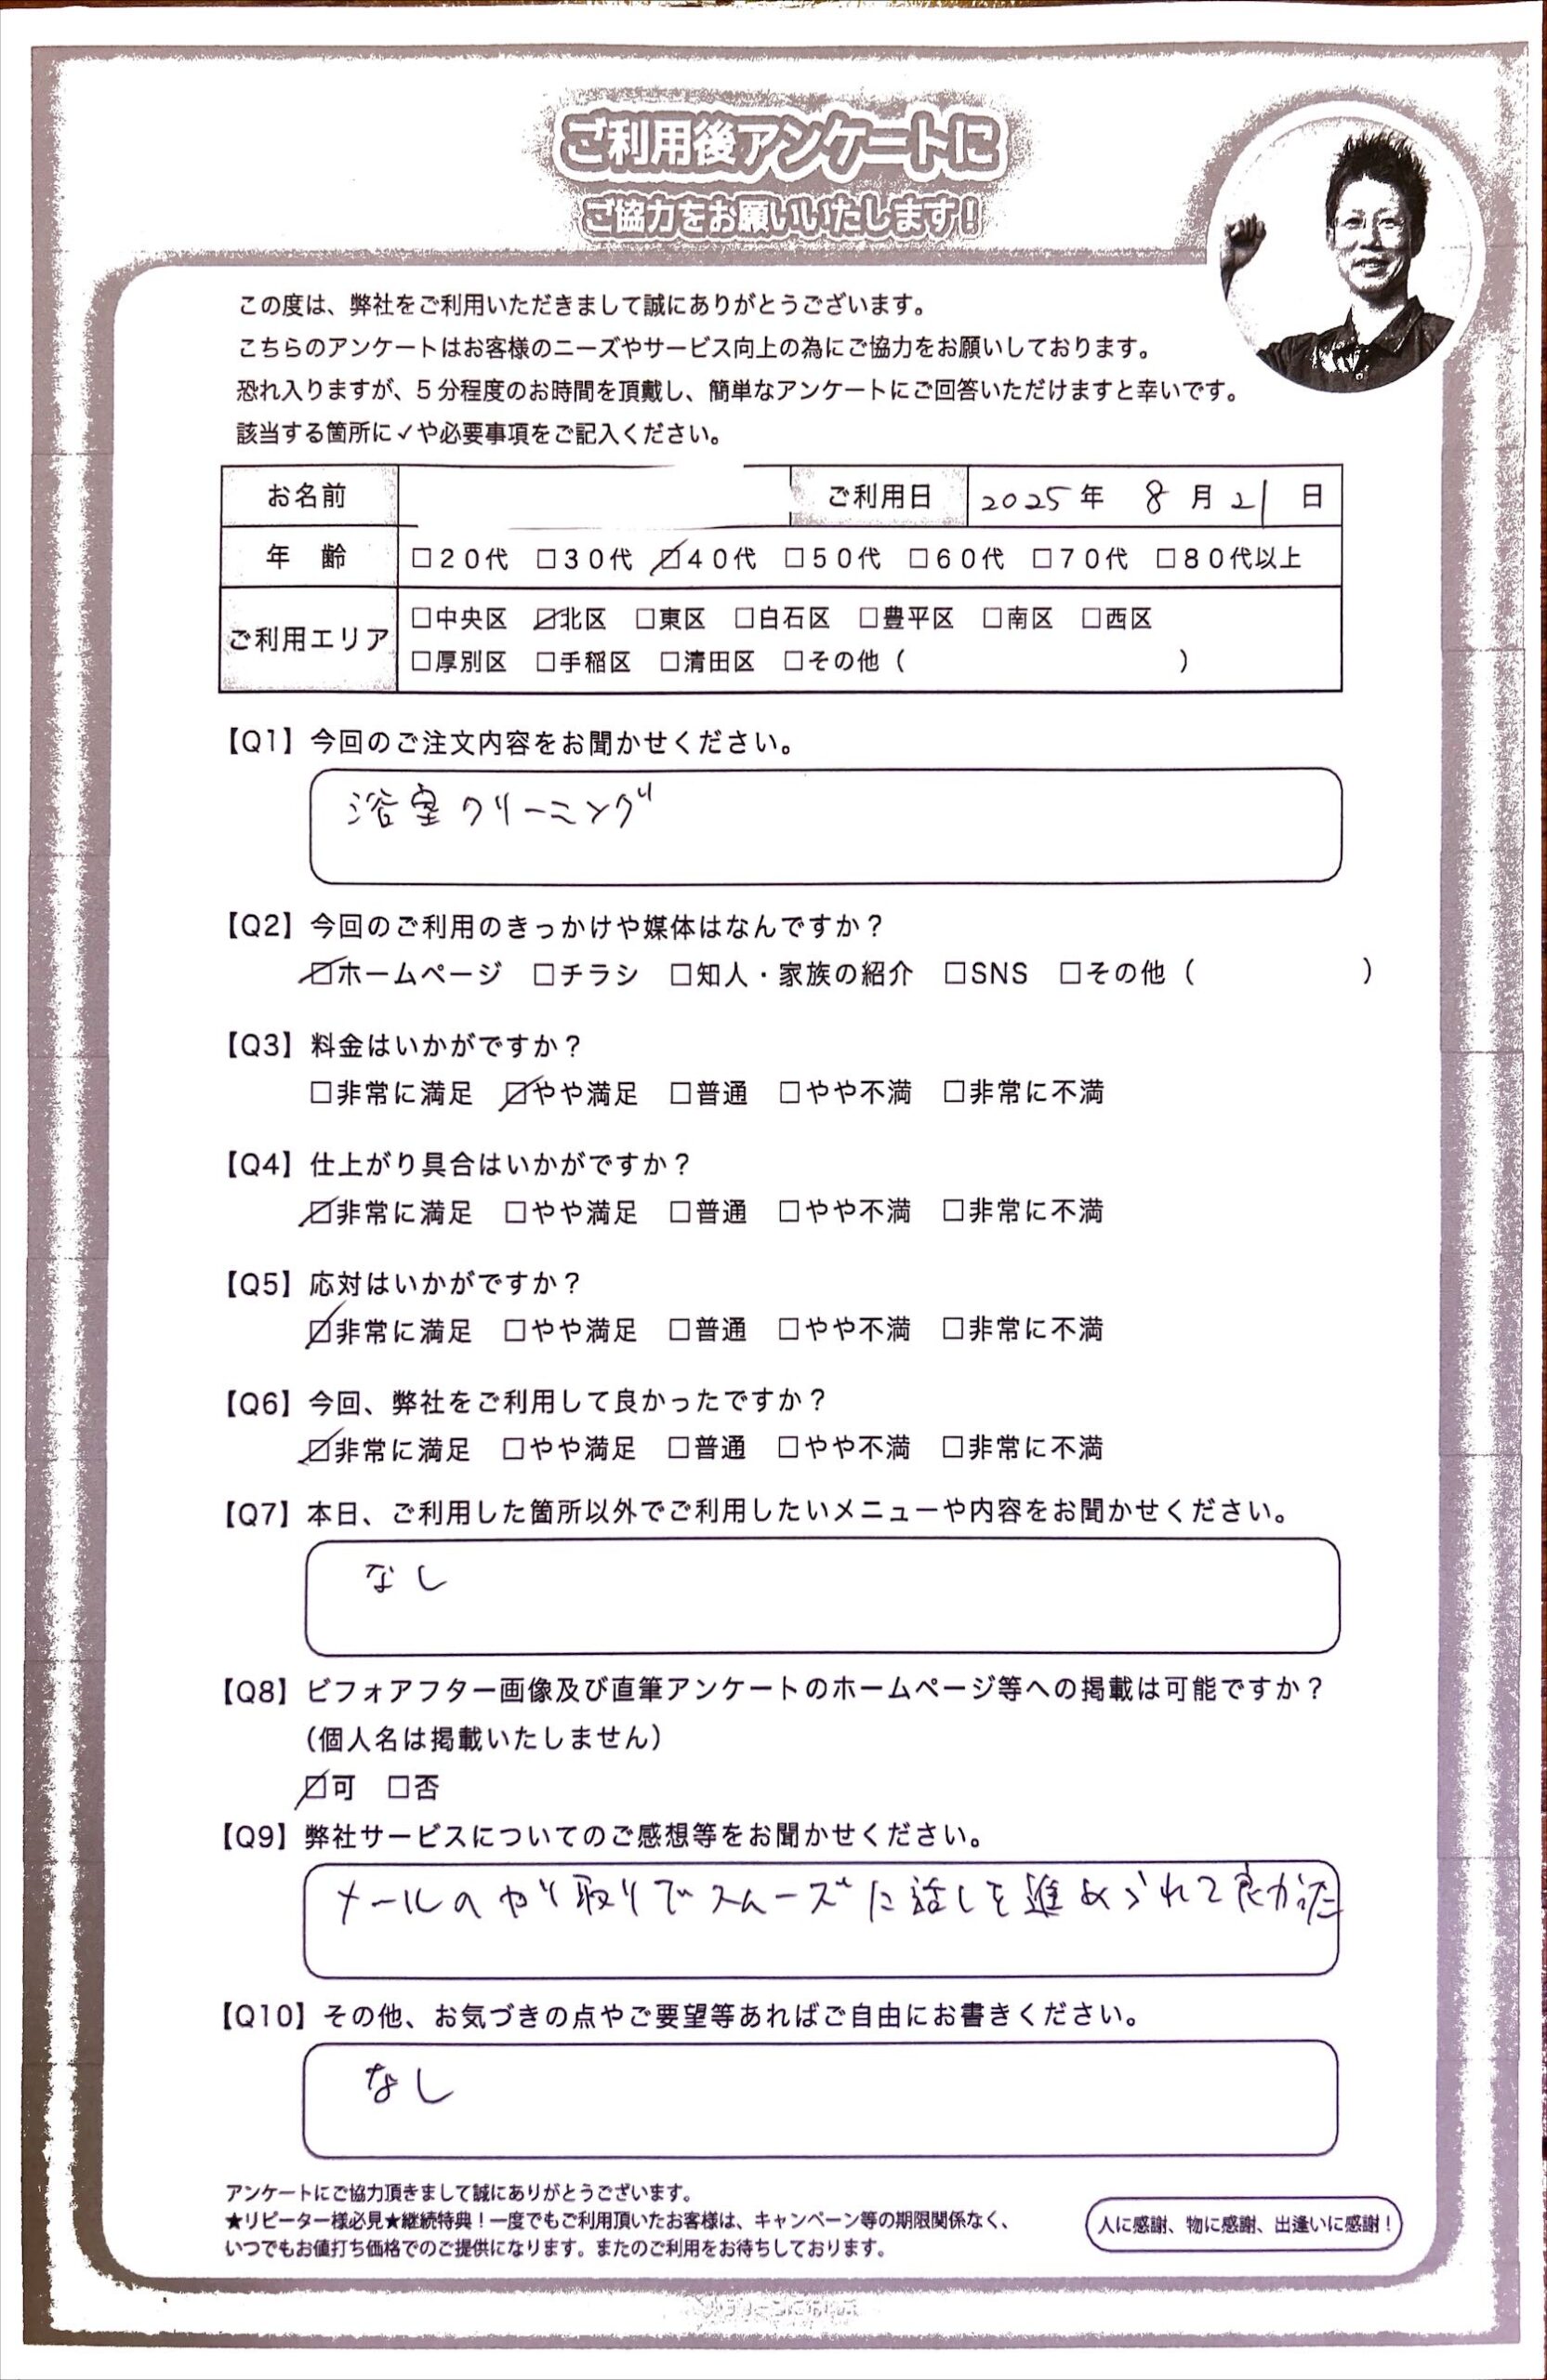 ご利用後アンケートに
ご協力をお願いいたします!
この度は、弊社をご利用いただきまして誠にありがとうございます。
こちらのアンケートはお客様のニーズやサービス向上の為にご協力をお願いしております。
恐れ入りますが、5分程度のお時間を頂戴し、簡単なアンケートにご回答いただけますと幸いです。
該当する箇所に✓や必要事項をご記入ください。
お名前 ご利用日 2025年 8月21日
年 齢 □20代 □30代 ☑40代 □50代 □60代 □70代 □80代以上
ご利用エリア □中央区 ☑北区 □東区 □白石区 □豊平区 □南区 □西区
□厚別区 □手稲区 □清田区 □その他( )
【Q1】今回のご注文内容をお聞かせください。
浴室クリーニング
【Q2】今回のご利用のきっかけや媒体はなんですか?
☑ホームページ □チラシ □知人・家族の紹介 □SNS □その他( )
【Q3】料金はいかがですか?
□非常に満足 ☑やや満足 □普通 □やや不満 □非常に不満
【Q4】仕上がり具合はいかがですか?
☑非常に満足 □やや満足 □普通 □やや不満 □非常に不満
【Q5】応対はいかがですか?
☑非常に満足 □やや満足 □普通 □やや不満 □非常に不満
【Q6】今回、弊社をご利用して良かったですか?
☑非常に満足 □やや満足 □普通 □やや不満 □非常に不満
【Q7】本日、ご利用した箇所以外でご利用したいメニューや内容をお聞かせください。
なし
【Q8】ビフォアフター画像及び直筆アンケートのホームページ等への掲載は可能ですか?
(個人名は掲載いたしません)
☑可 □否
【Q9】弊社サービスについてのご感想等をお聞かせください。
メールのやり取りでスムーズに話しを進められて良かった
【Q10】その他、お気づきの点やご要望等あればご自由にお書きください。
なし
アンケートにご協力頂きまして誠にありがとうございます。
★リピーター様必見★継続特典!一度でもご利用頂いたお客様は、キャンペーン等の期限関係なく、
いつでもお値打ち価格でのご提供になります。またのご利用をお待ちしております。
人に感謝、物に感謝、出逢いに感謝!